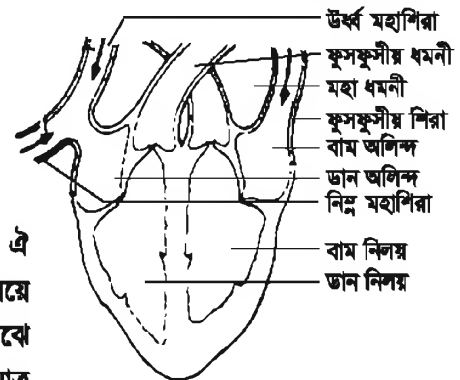 ঊর্ধ্ব মহাশিরা
ফুসফুসীয় ধমনী
মহা ধমনী
ফুসফুসীয় শিরা
বাম অলিন্দ
ডান অলিন্দ
নিম্ন মহাশিরা
বাম নিলয়
ডান নিলয়
ঐ
য়ে
ঝে